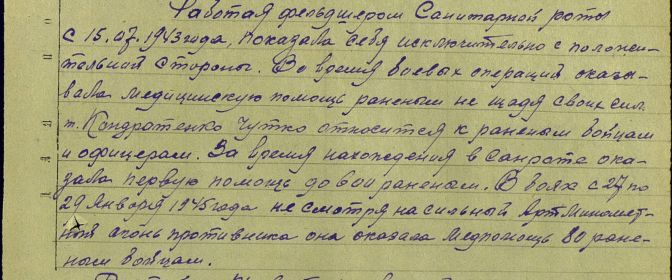 Работая фельдшером Санитарной роты
с 15.07.1943 года, показала себя исключительно с положи-
тельной стороны. Во время боевых операций оказы-
вала медицинскую помощь раненым не щадя своих сил.
т. Кондратенко чутко относится к раненым бойцам
и офицерам. За время нахождения в санроте ока-
зала первую помощь до 600 раненым. В боях с 27 по
29 Января 1945 года не смотря на сильный Арт.Миномет-
ный огонь противника она оказала медпомощь 80 ране-
ным бойцам.